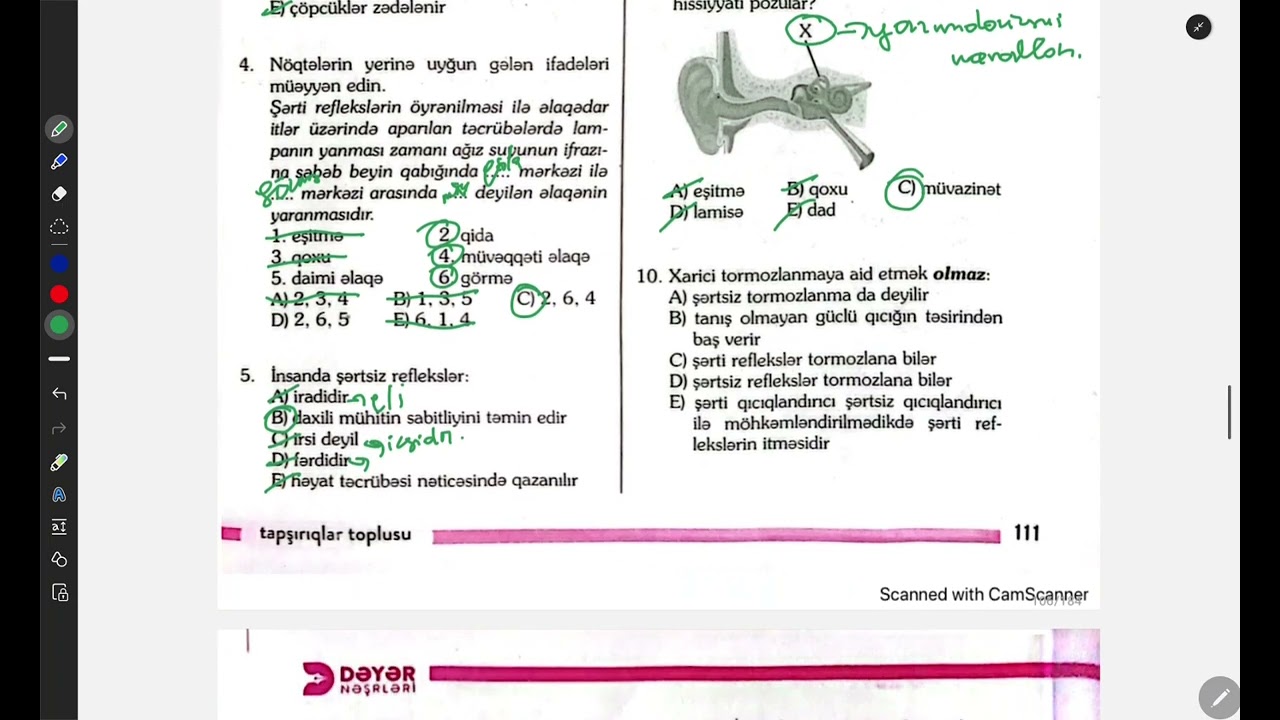 E) çöpcüklər zədələnir
4. Nöqtələrin yerinə uyğun gələn ifadələri
müəyyən edin.
Şərti reflekslərin öyrənilməsi ilə əlaqədar
itlər üzərində aparılan təcrübələrdə lam-
panın yanması zamanı ağız suyunun ifrazı-
na səbəb beyin qabığında ... mərkəzi ilə
görmə
... mərkəzi arasında ... deyilən əlaqənin
yaranmasıdır.
1. eşitmə 2. qida
3. qoxu 4. müvəqqəti əlaqə
5. daimi əlaqə 6. görmə
A) 2, 3, 4 B) 1, 3, 5 C) 2, 6, 4
D) 2, 6, 5 E) 6, 1, 4
5. İnsanda şərtsiz reflekslər:
A) iradidir
B) daxili mühitin sabitliyini təmin edir
C) irsi deyil
D) fərdidir
E) həyat təcrübəsi nəticəsində qazanılır
hissiyyatı pozular?
X
A) eşitmə B) qoxu C) müvazinət
D) lamisə E) dad
10. Xarici tormozlanmaya aid etmək olmaz:
A) şərtsiz tormozlanma da deyilir
B) tanış olmayan güclü qıcığın təsirindən
baş verir
C) şərti reflekslər tormozlana bilər
D) şərtsiz reflekslər tormozlana bilər
E) şərti qıcıqlandırıcı şərtsiz qıcıqlandırıcı
ilə möhkəmləndirilmədikdə şərti ref-
lekslərin itməsidir
tapşırıqlar toplusu 111
Scanned with CamScanner
106/184
DƏYƏR
NƏŞRLƏRİ